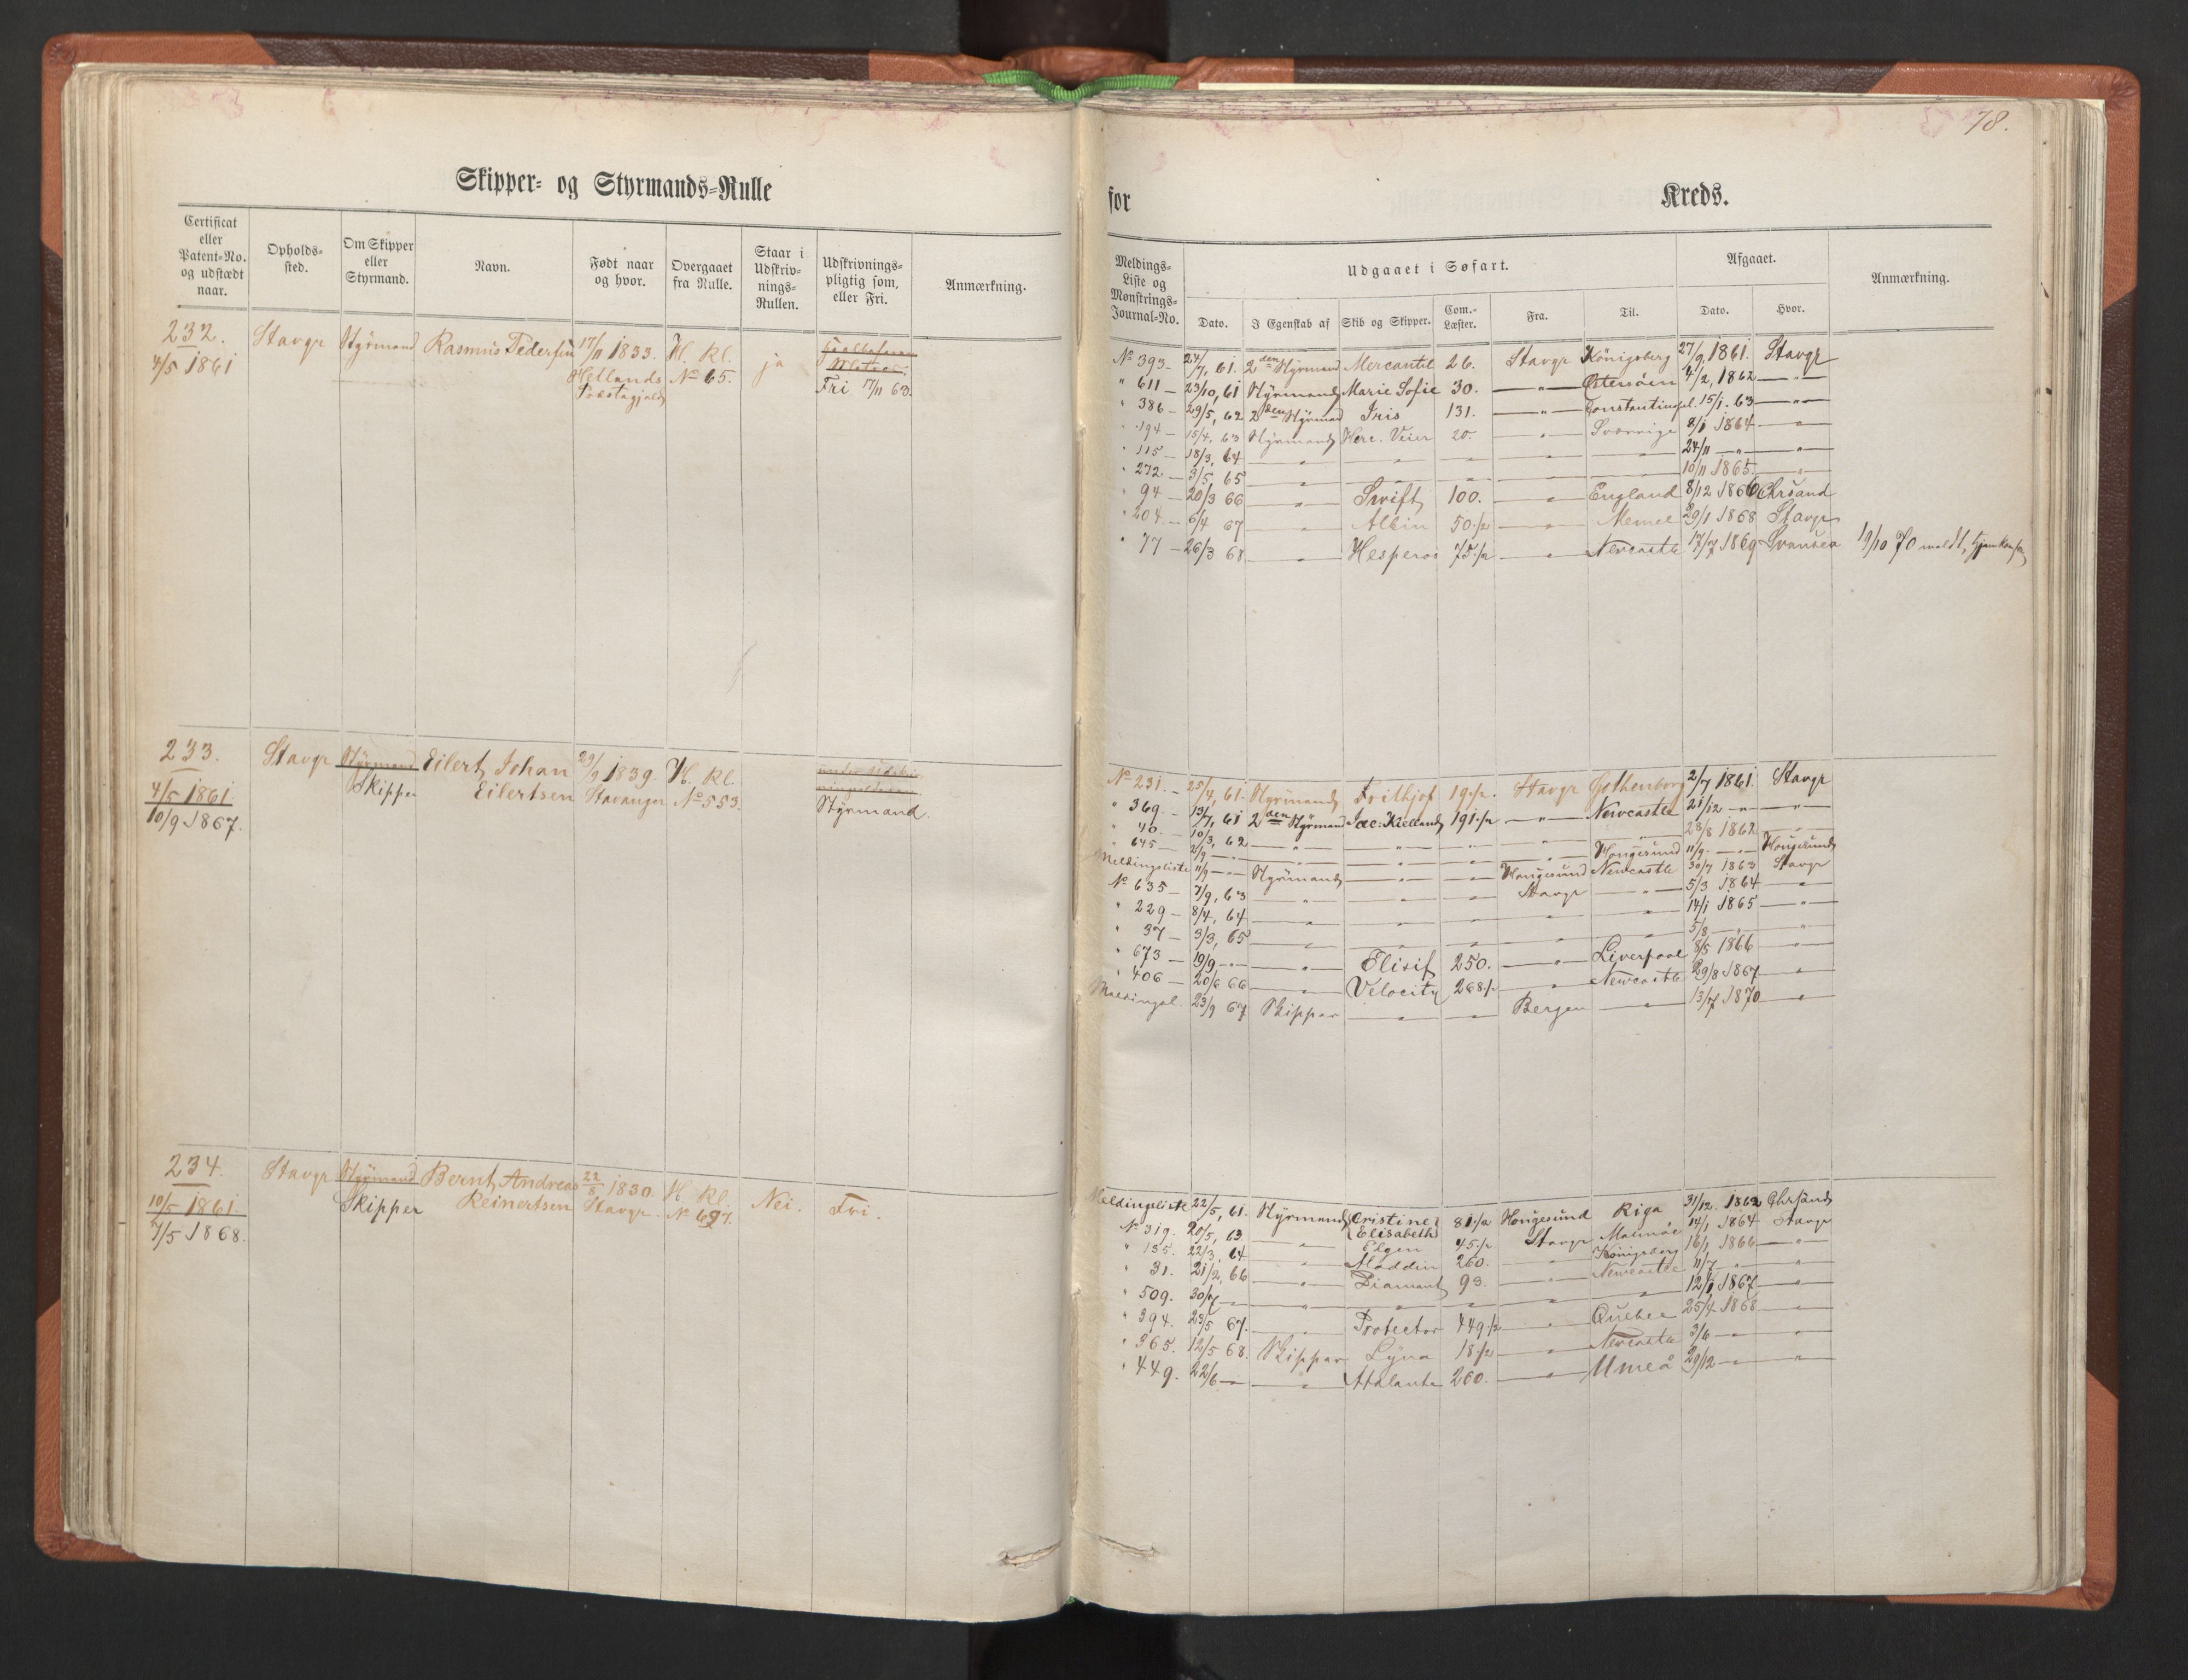 78.
Skipper- og Styrmands-Rulle
for Kreds.
Certificat eller Patent-No. og udstædt naar.
Opholds-sted.
Om Skipper eller Styrmand.
Navn.
Født naar og hvor.
Overgaaet fra Rulle.
Staar i Udskriv-nings-Rullen.
Udskrivnings-pligtig som, eller Fri.
Anmærkning.
Meldings-Liste og Mønstrings-Journal-No.
Udgaaet i Søfart.
Dato.
I Egenskab af
Skib og Skipper.
Com.-Læster.
Fra.
Til.
Afgaaet.
Dato.
Hvor.
Anmærkning.
232. Stavgr Styrmand Rasmus Pedersen 17/11 1833. H. Kl. ja
4/5 1861 Hetlands No 65. Fri 17/11 63.
Præstegjeld
No 393 - 24/7, 61. 2den Styrmand Mercantil 26. Stavgr Königsberg 27/9, 1861. Stavgr
" 611 - 23/10, 61 Styrmand Marie Sofie 30. — " — 4/2, 1862 — " —
" 386 - 29/5, 62 2den Styrmand Iris 131. — " — Constantinopel. 15/1. 63 — " —
" 194 - 15/4, 63 Styrmand Herc. Veier 20. — " — Sverrige 8/1 1864 — " —
" 115 - 18/3, 64 — " — — " — — " — — " — — " — 24/11 — " — — " —
" 272 - 3/5, 65 — " — — " — — " — — " — — " — 10/11 1865. — " —
" 94 - 20/3 66 — " — Swift 100. — " — England 8/12 1866 Chrsand
" 204 - 6/4 67 — " — Albin 50 1/2 — " — Memel 29/1 1868 Stavgr
" 77 - 26/3 68 — " — Hesperos 75 1/2 — " — Newcastle 17/7 1869 Svansea 19/10 70 meldt hjemkomst
233. Stavgr Styrmand Eilert Johan 29/9 1839. H. Kl.
4/5 1861. Skipper Eilertsen Stavanger No 553. Styrmand.
10/9 1867.
No 231. - 25/4, 61. Styrmand Frithjof 19 1/2. Stavgr Gothenborg 2/7 1861. Stavgr
" 369. - 13/7, 61 2den Styrmand Jac: Kielland 191 1/2 — " — Newcastle 21/12 — " — — " —
" 40. - 10/3, 62 — " — — " — — " — — " — — " — 28/8 1862 — " —
" 645 - 2/9 — " — — " — — " — — " — — " — Haugesund 11/9. — " — Haugesund
Meldingsliste 11/9 — " — Styrmand — " — — " — Haugesund Newcastle 30/7 1863 Stavgr
No 635 - 7/9, 63 — " — — " — — " — Stavgr — " — 5/3 1864 — " —
" 229 - 8/4, 64 — " — — " — — " — — " — — " — 14/1 1865 — " —
" 37 - 3/3, 65 — " — — " — — " — — " — — " — 5/8 — " — — " —
" 673 - 19/9 — " — — " — Elisif 250. — " — Liverpool 8/5 1866 — " —
" 406 - 20/6 66 — " — Velocity 268 1/2 — " — Newcastle 29/8 1867 — " —
Meldingsl. 23/9 67 Skipper — " — — " — Bergen — " — 13/7 1870 — " —
234. Stavgr Styrmand Bernt Andreas 22/8 1830. H. Kl. Nei. Fri.
10/5 1861. Skipper Reinertsen Stavgr. No 697.
7/5 1868.
Meldingsliste 22/5, 61. Styrmand Cristine Elisabeth 81 1/2 Haugesund Riga 31/12. 1862 Chrsand
No 319. 20/5, 63. — " — Elgen 45 1/2 Stavgr Malmöe 14/1 1864 Stavgr
" 135. 22/3, 64 — " — Aladdin 260. — " — Königsberg 16/1 1866 — " —
" 31. 21/2, 66 — " — Diamant 93. — " — Newcastle 11/7 — " — — " —
" 509. 30/7 — " — — " — — " — — " — — " — — " — 12/1 1867 — " —
" 394. 23/5 67. — " — Protector 449 1/2 — " — Quebec 25/4 1868 — " —
" 365. 12/5 68. Skipper Lyna 18 1/2 — " — Newcastle 3/6 — " — — " —
" 449. 22/6 — " — — " — Atalanta 260. — " — Umeå 29/12 — " — — " —